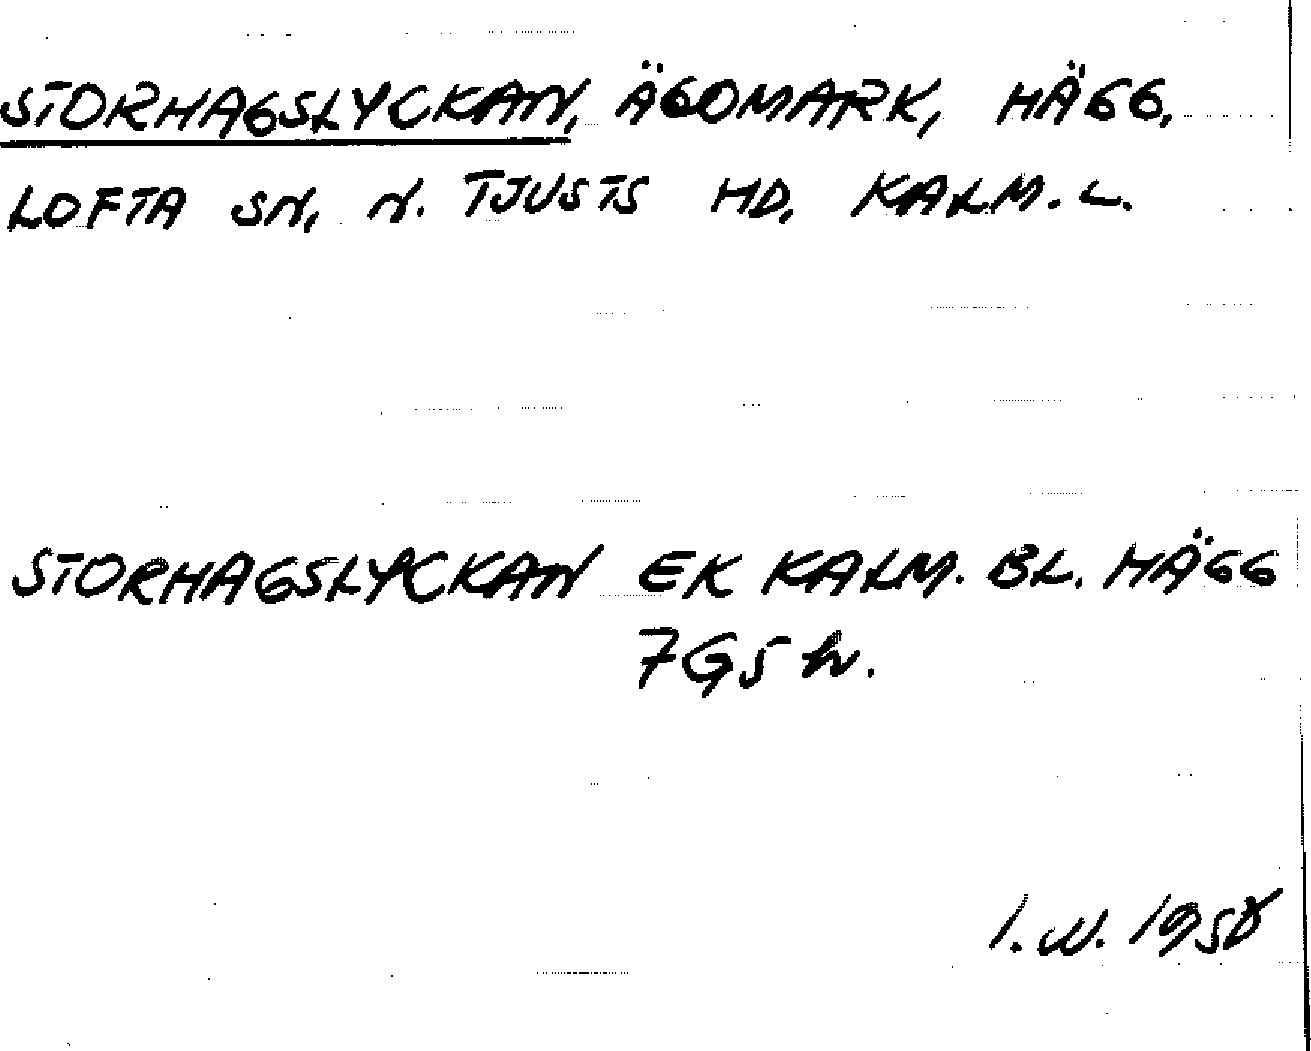 STORHAGSLYCKAN, ÄGOMARK, HÄGG,
LOFTA SN, N. TJUSTS HD, KALM. L.
STORHAGSLYCKAN EK KALM. BL. HÄGG
7G5h.
I. N. 1958